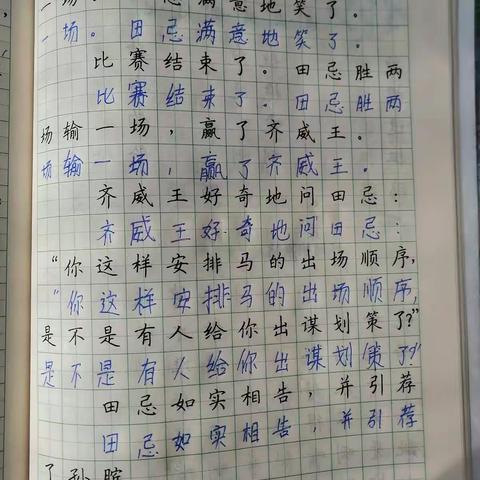 一场。田忌满意地笑了。
一场。田忌满意地笑了。
比赛结束了。田忌胜两
比赛结束了。田忌胜两
场输一场，赢了齐威王。
场输一场，赢了齐威王。
齐威王好奇地问田忌：
齐威王好奇地问田忌：
“你这样安排马的出场顺序，
“你这样安排马的出场顺序，
是不是有人给你出谋划策了？”
是不是有人给你出谋划策了？”
田忌如实相告，并引荐
田忌如实相告，并引荐
了孙膑